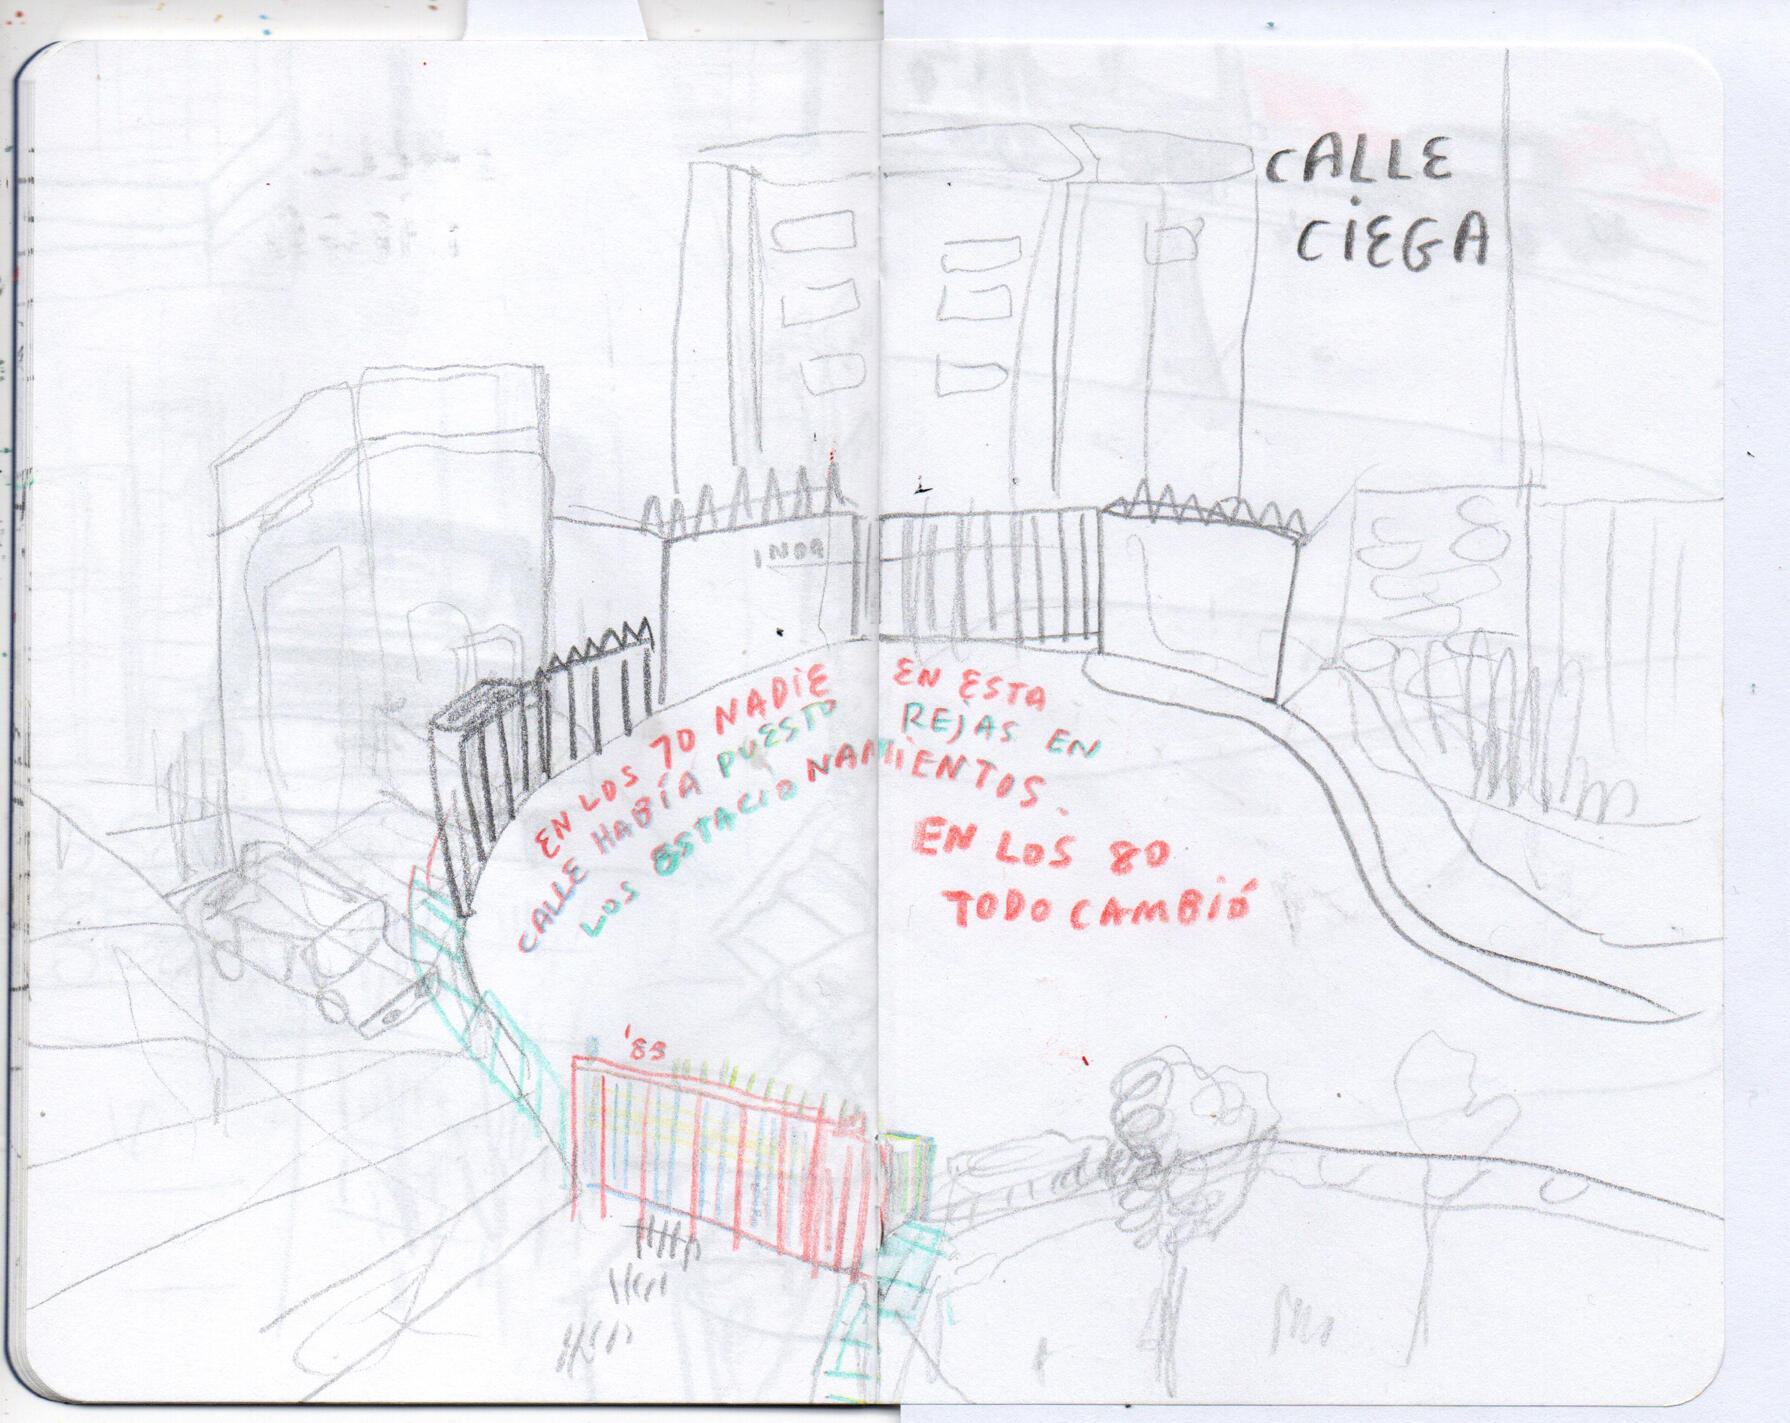 CALLE
CIEGA
EN LOS 70 NADIE EN ESTA
CALLE HABÍA PUESTO REJAS EN
LOS ESTACIONAMIENTOS.
EN LOS 80
TODO CAMBIÓ